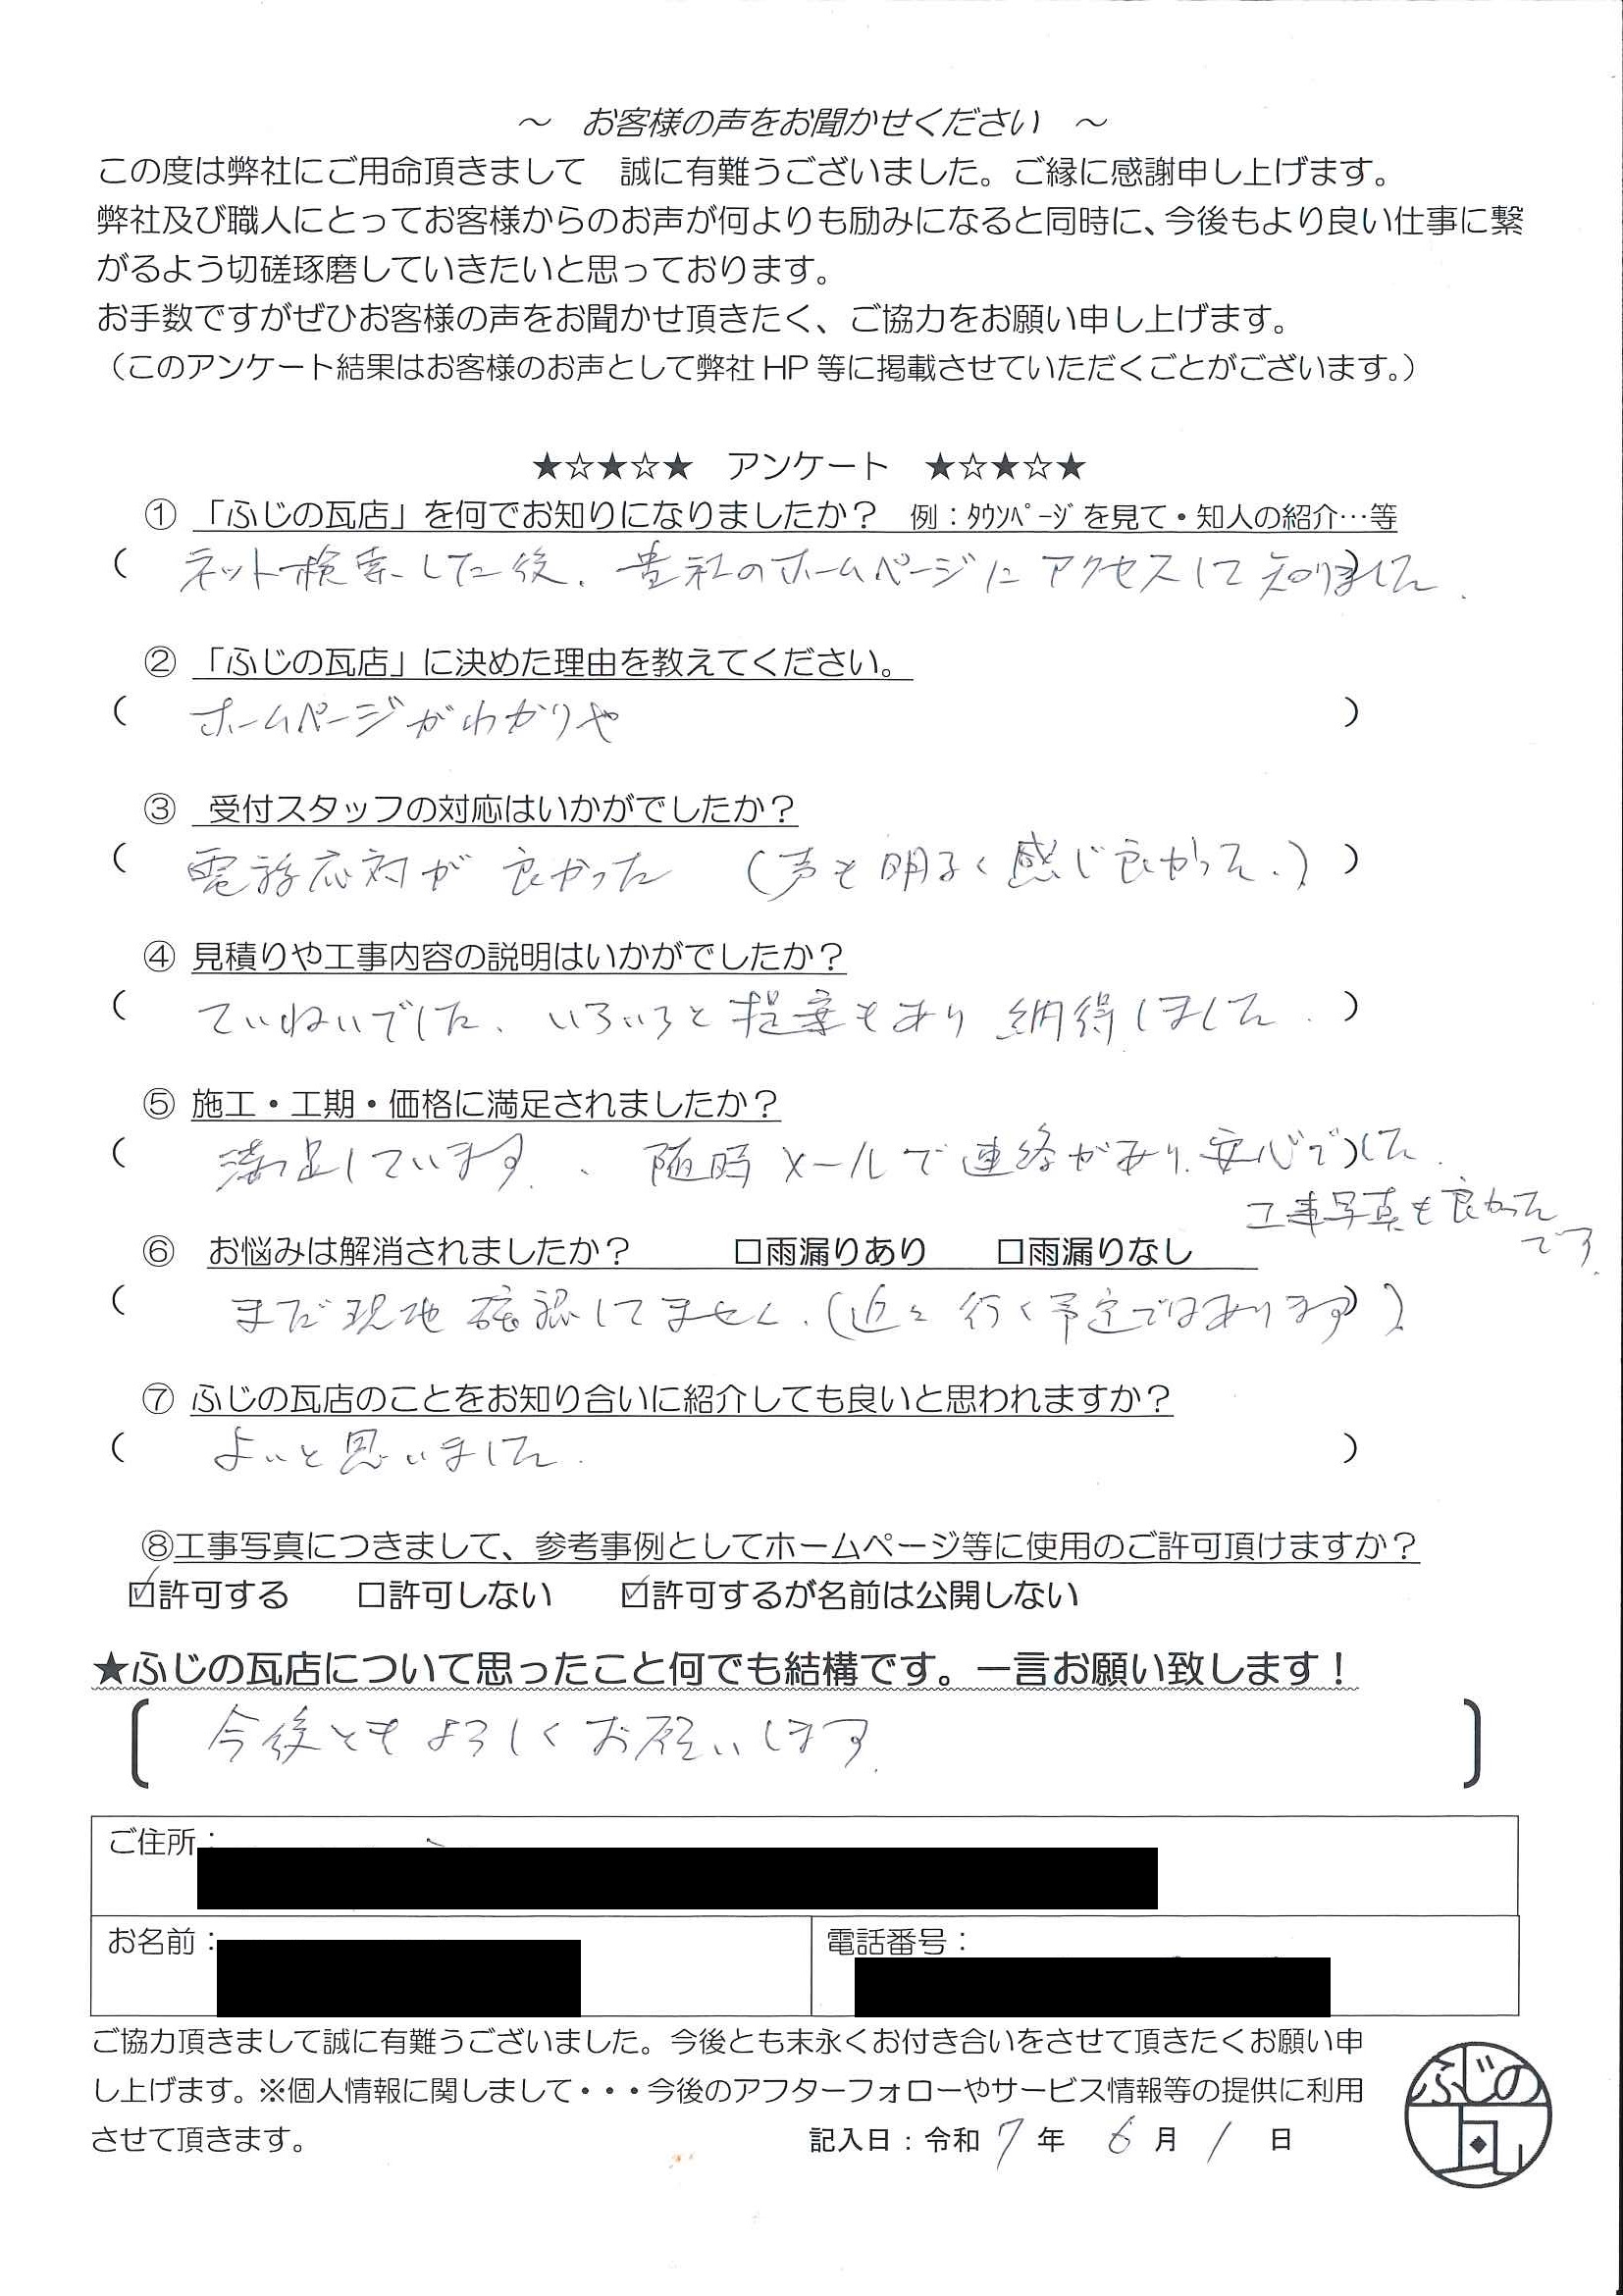 ～　お客様の声をお聞かせください　～
この度は弊社にご用命頂きまして　誠に有難うございました。ご縁に感謝申し上げます。
弊社及び職人にとってお客様からのお声が何よりも励みになると同時に、今後もより良い仕事に繋
がるよう切磋琢磨していきたいと思っております。
お手数ですがぜひお客様の声をお聞かせ頂きたく、ご協力をお願い申し上げます。
（このアンケート結果はお客様のお声として弊社 HP 等に掲載させていただくごとがございます。）
★☆★☆★　アンケート　★☆★☆★
① 「ふじの瓦店」を何でお知りになりましたか？　例：ﾀｳﾝﾍﾟｰｼﾞを見て・知人の紹介…等
（　ネット検索した後、貴社のホームページにアクセスして知りました。）
② 「ふじの瓦店」に決めた理由を教えてください。
（　ホームページがわかりや　）
③　受付スタッフの対応はいかがでしたか？
（　電話応対が良かった　（声も明るく感じ良かった。）　）
④ 見積りや工事内容の説明はいかがでしたか？
（　ていねいでした、いろいろと提案もあり納得しました。　）
⑤ 施工・工期・価格に満足されましたか？
（　満足しています。、随時メールで連絡があり、安心でした。　）
工事写真も良かった
です。
⑥　お悩みは解消されましたか？　　□雨漏りあり　　□雨漏りなし
（　まだ現地確認してません。（近々行く予定ではあります）　）
⑦ ふじの瓦店のことをお知り合いに紹介しても良いと思われますか？
（　よいと思いました。　）
⑧工事写真につきまして、参考事例としてホームページ等に使用のご許可頂けますか？
☑許可する　　□許可しない　　☑許可するが名前は公開しない
★ふじの瓦店について思ったこと何でも結構です。一言お願い致します！
〔　今後ともよろしくお願いします。　〕
ご住所：
お名前：　　電話番号：
ご協力頂きまして誠に有難うございました。今後とも末永くお付き合いをさせて頂きたくお願い申
し上げます。※個人情報に関しまして・・・今後のアフターフォローやサービス情報等の提供に利用
させて頂きます。　　記入日：令和 7 年 6 月 1 日
ふじの
瓦